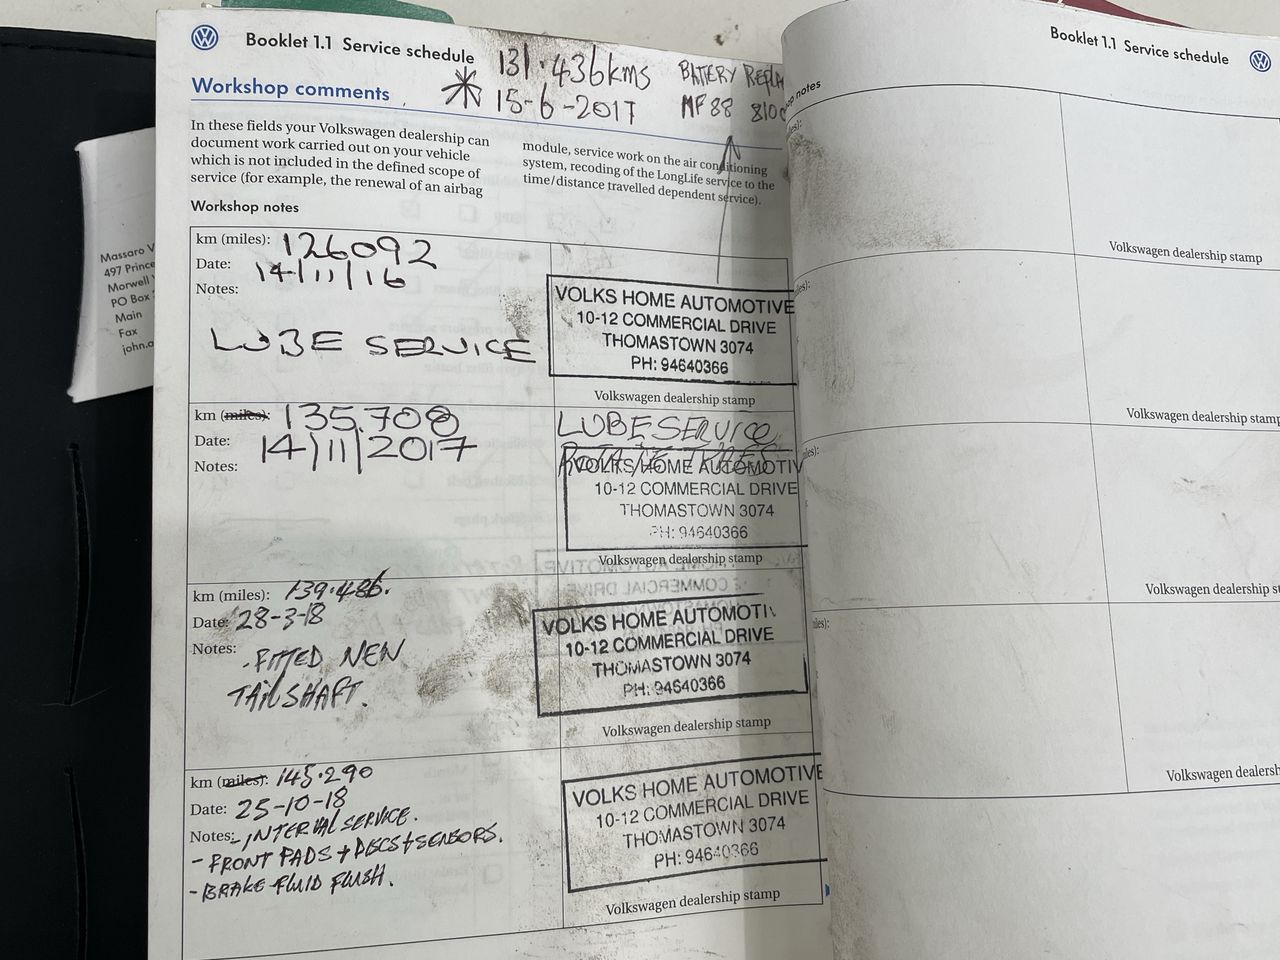 Booklet 1.1 Service schedule
131.436kms
15-6-2017
BATTERY
MF 88
Workshop comments
In these fields your Volkswagen dealership can
document work carried out on your vehicle
which is not included in the defined scope of
service (for example, the renewal of an airbag
module, service work on the air conditioning
system, recoding of the LongLife service to the
time/distance travelled dependent service).
Workshop notes
km (miles): 126092
Date: 14/11/16
Notes:
LUBE SERVICE
VOLKS HOME AUTOMOTIVE
10-12 COMMERCIAL DRIVE
THOMASTOWN 3074
PH: 94640366
Volkswagen dealership stamp
km (miles): 135.708
Date: 14/11/2017
Notes:
LUBE SERVICE
ROTATE TYRES
VOLKS HOME AUTOMOTIV
10-12 COMMERCIAL DRIVE
THOMASTOWN 3074
PH: 94640366
Volkswagen dealership stamp
km (miles): 139.486.
Date: 28-3-18
Notes:
. FITTED NEW
TAILSHAFT.
VOLKS HOME AUTOMOTIV
10-12 COMMERCIAL DRIVE
THOMASTOWN 3074
PH: 94640366
Volkswagen dealership stamp
km (miles): 145.290
Date: 25-10-18
Notes: - INTERVAL SERVICE.
- FRONT PADS + DISCS + SENSORS.
- BRAKE FLUID FLUSH.
VOLKS HOME AUTOMOTIVE
10-12 COMMERCIAL DRIVE
THOMASTOWN 3074
PH: 94640366
Volkswagen dealership stamp
Massaro V
497 Prince
Morwell
PO Box
Main
Fax
john.a
Booklet 1.1 Service schedule
notes
Volkswagen dealership stamp
Volkswagen dealership stamp
Volkswagen dealership st
Volkswagen dealersh